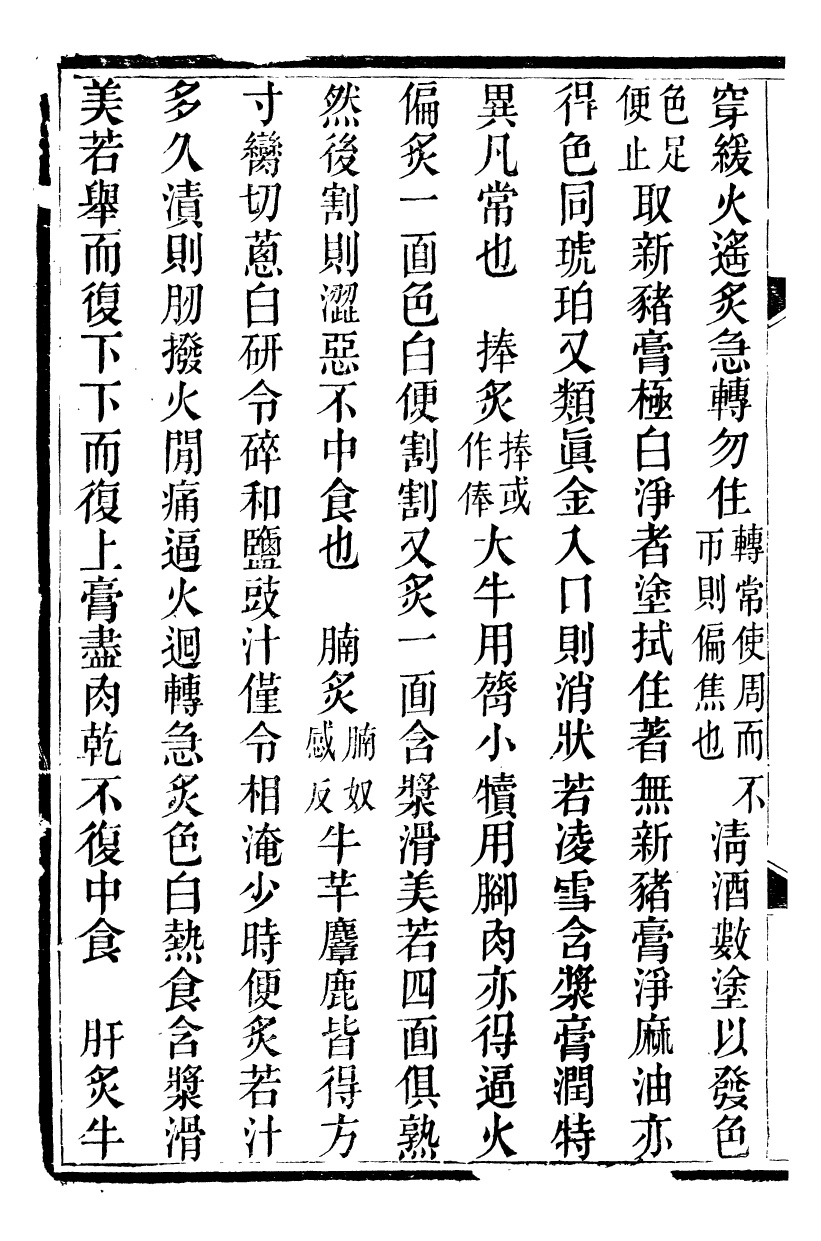 穿緩火遙炙急轉勿住轉常使周而不帀則偏焦也清酒數塗以發色
色足便止取新豬膏極白淨者塗拭住著無新豬膏淨麻油亦
得色同琥珀又類眞金入口則消狀若凌雪含漿膏潤特
異凡常也　捧炙捧或作俸大牛用膂小犢用腳肉亦得逼火
偏炙一面色白便割割又炙一面含漿滑美若四面俱熟
然後割則澀惡不中食也　腩炙腩奴感反牛羊麞鹿皆得方
寸臠切蔥白研令碎和鹽豉汁僅令相淹少時便炙若汁
多久漬則肕撥火開痛逼火迴轉急炙色白熱食含漿滑
美若舉而復下下而復上膏盡肉乾不復中食　肝炙牛